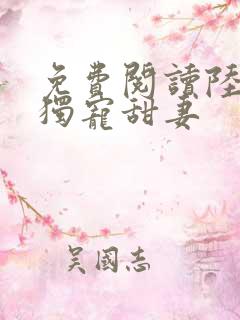 免費閱讀陸
獨寵甜妻
吴國志